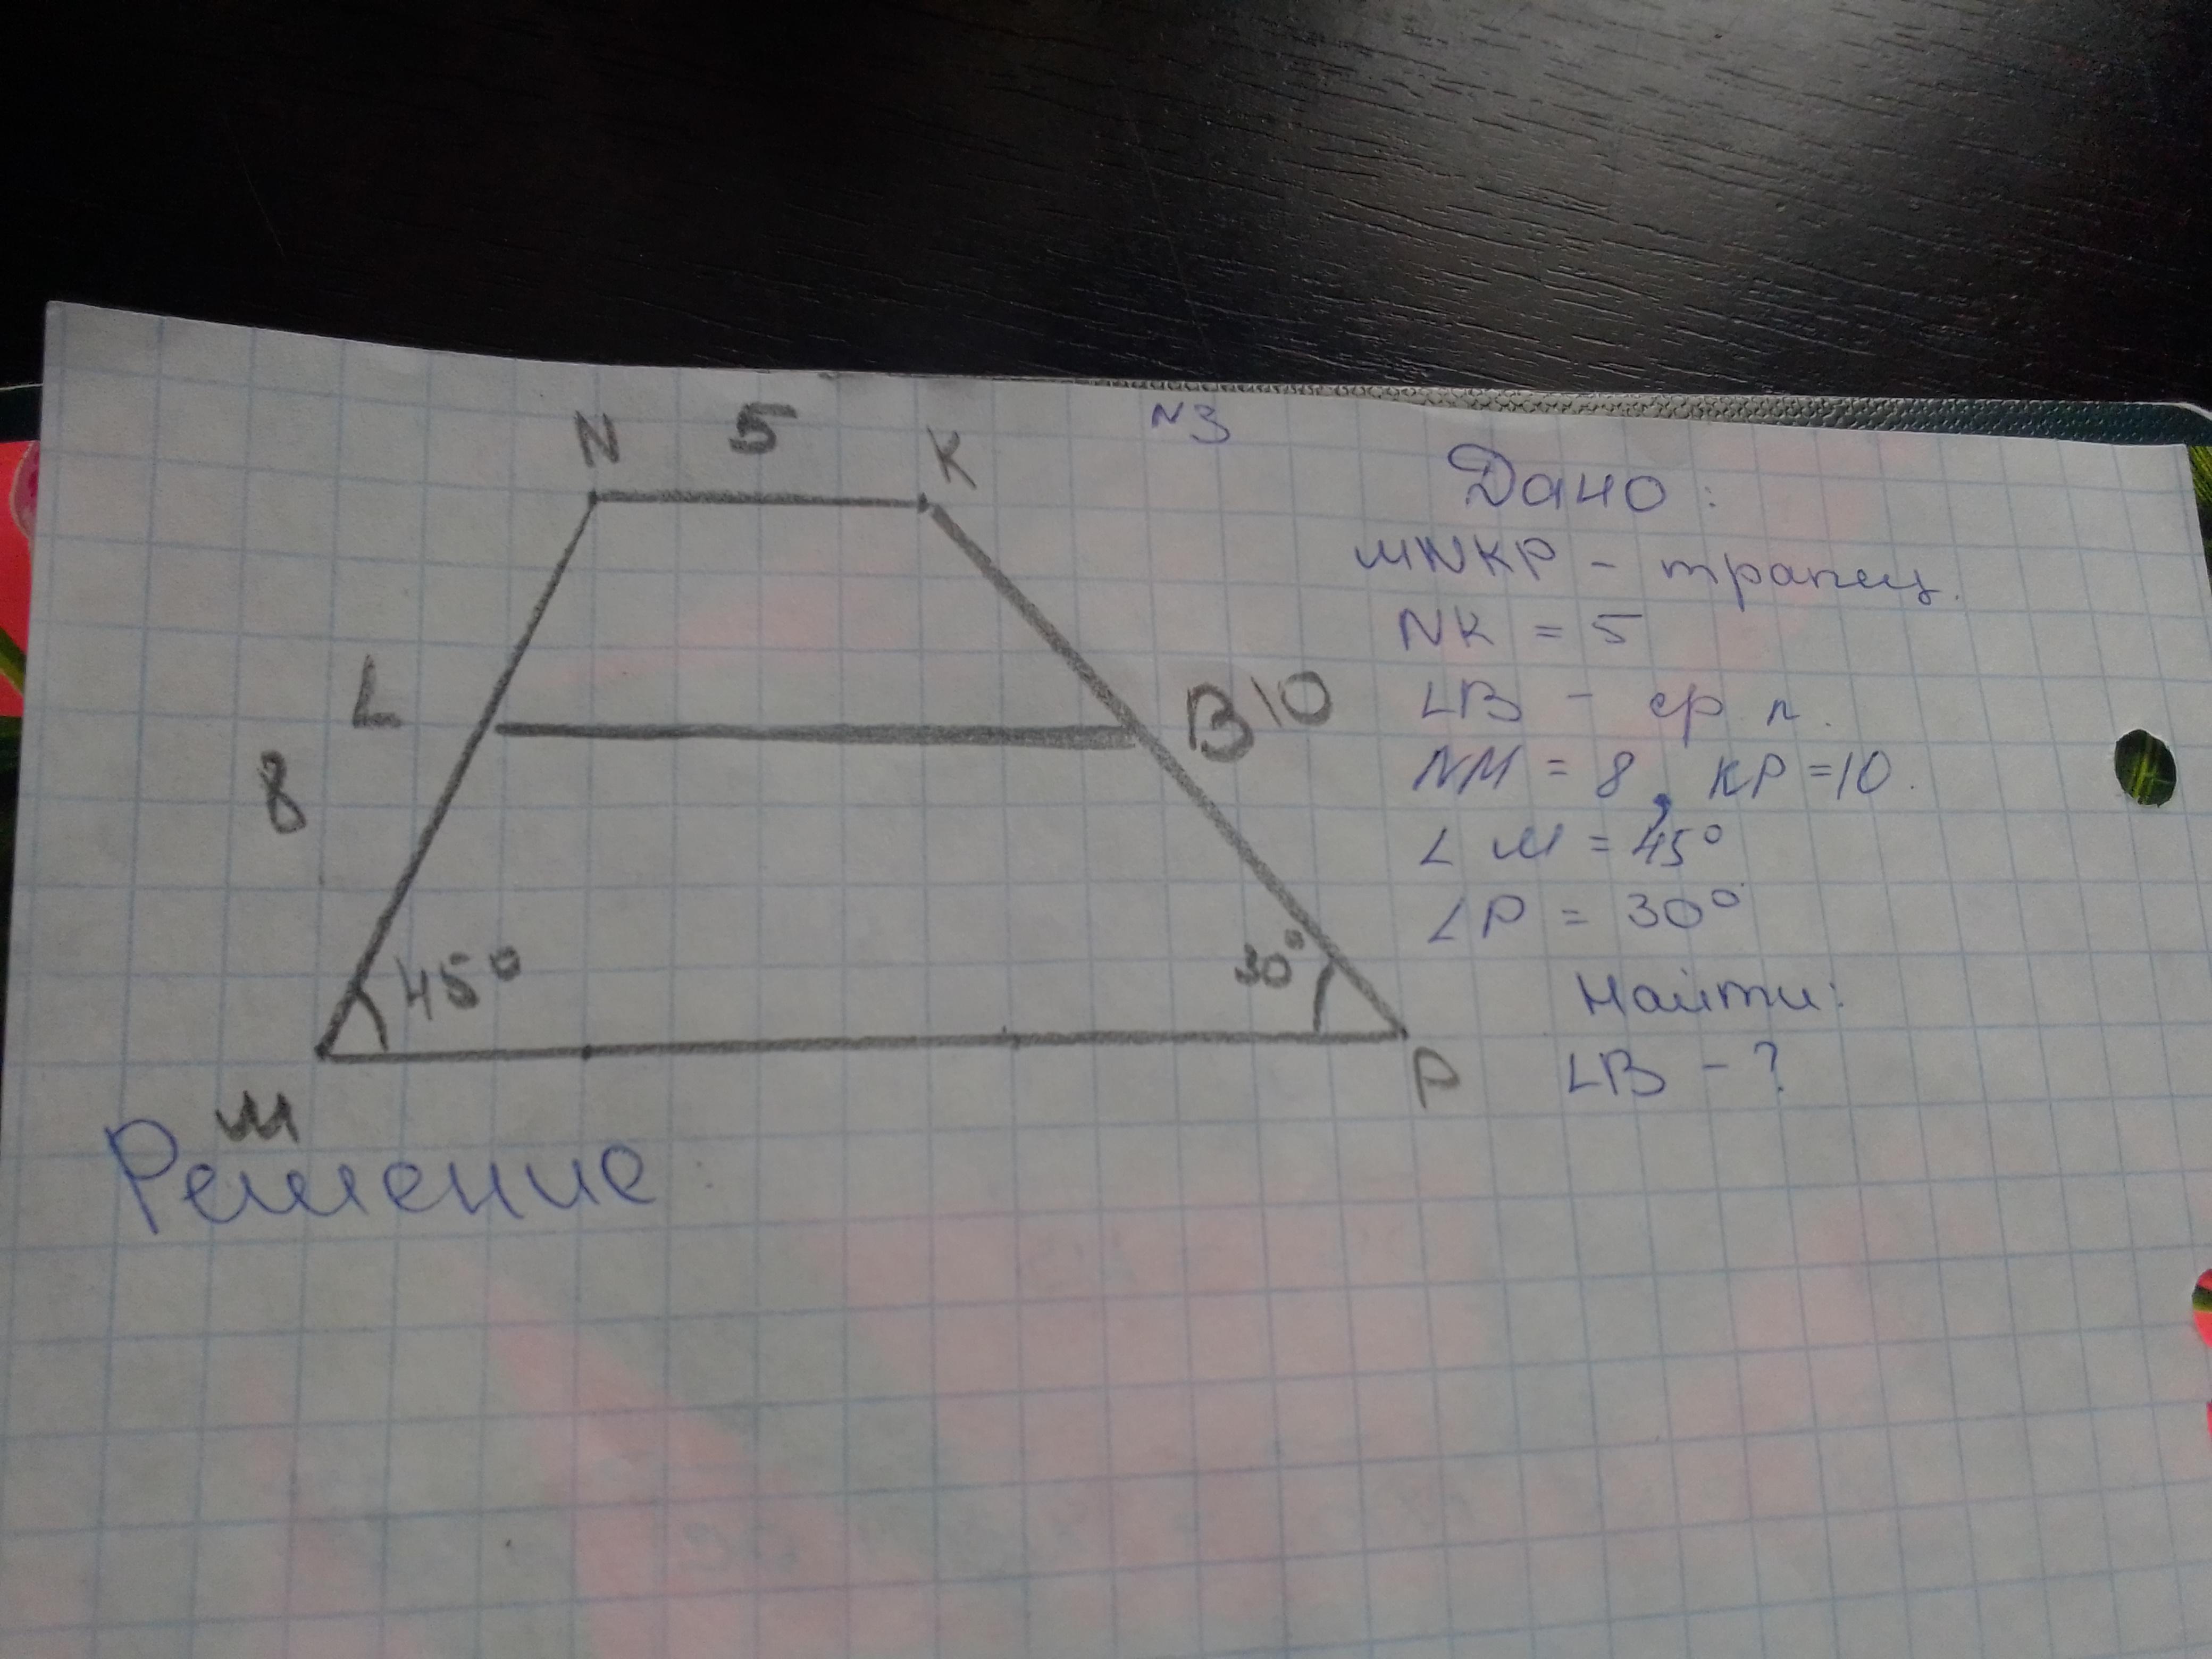 N 5 K
N3
Дано:
MNKP - трапец.
NK = 5
LB - ср л.
NM = 8, KP = 10
L B 10
8
∠ M = 45°
∠P = 30°
45° 30°
Найти:
M P
LB - ?
Решение: